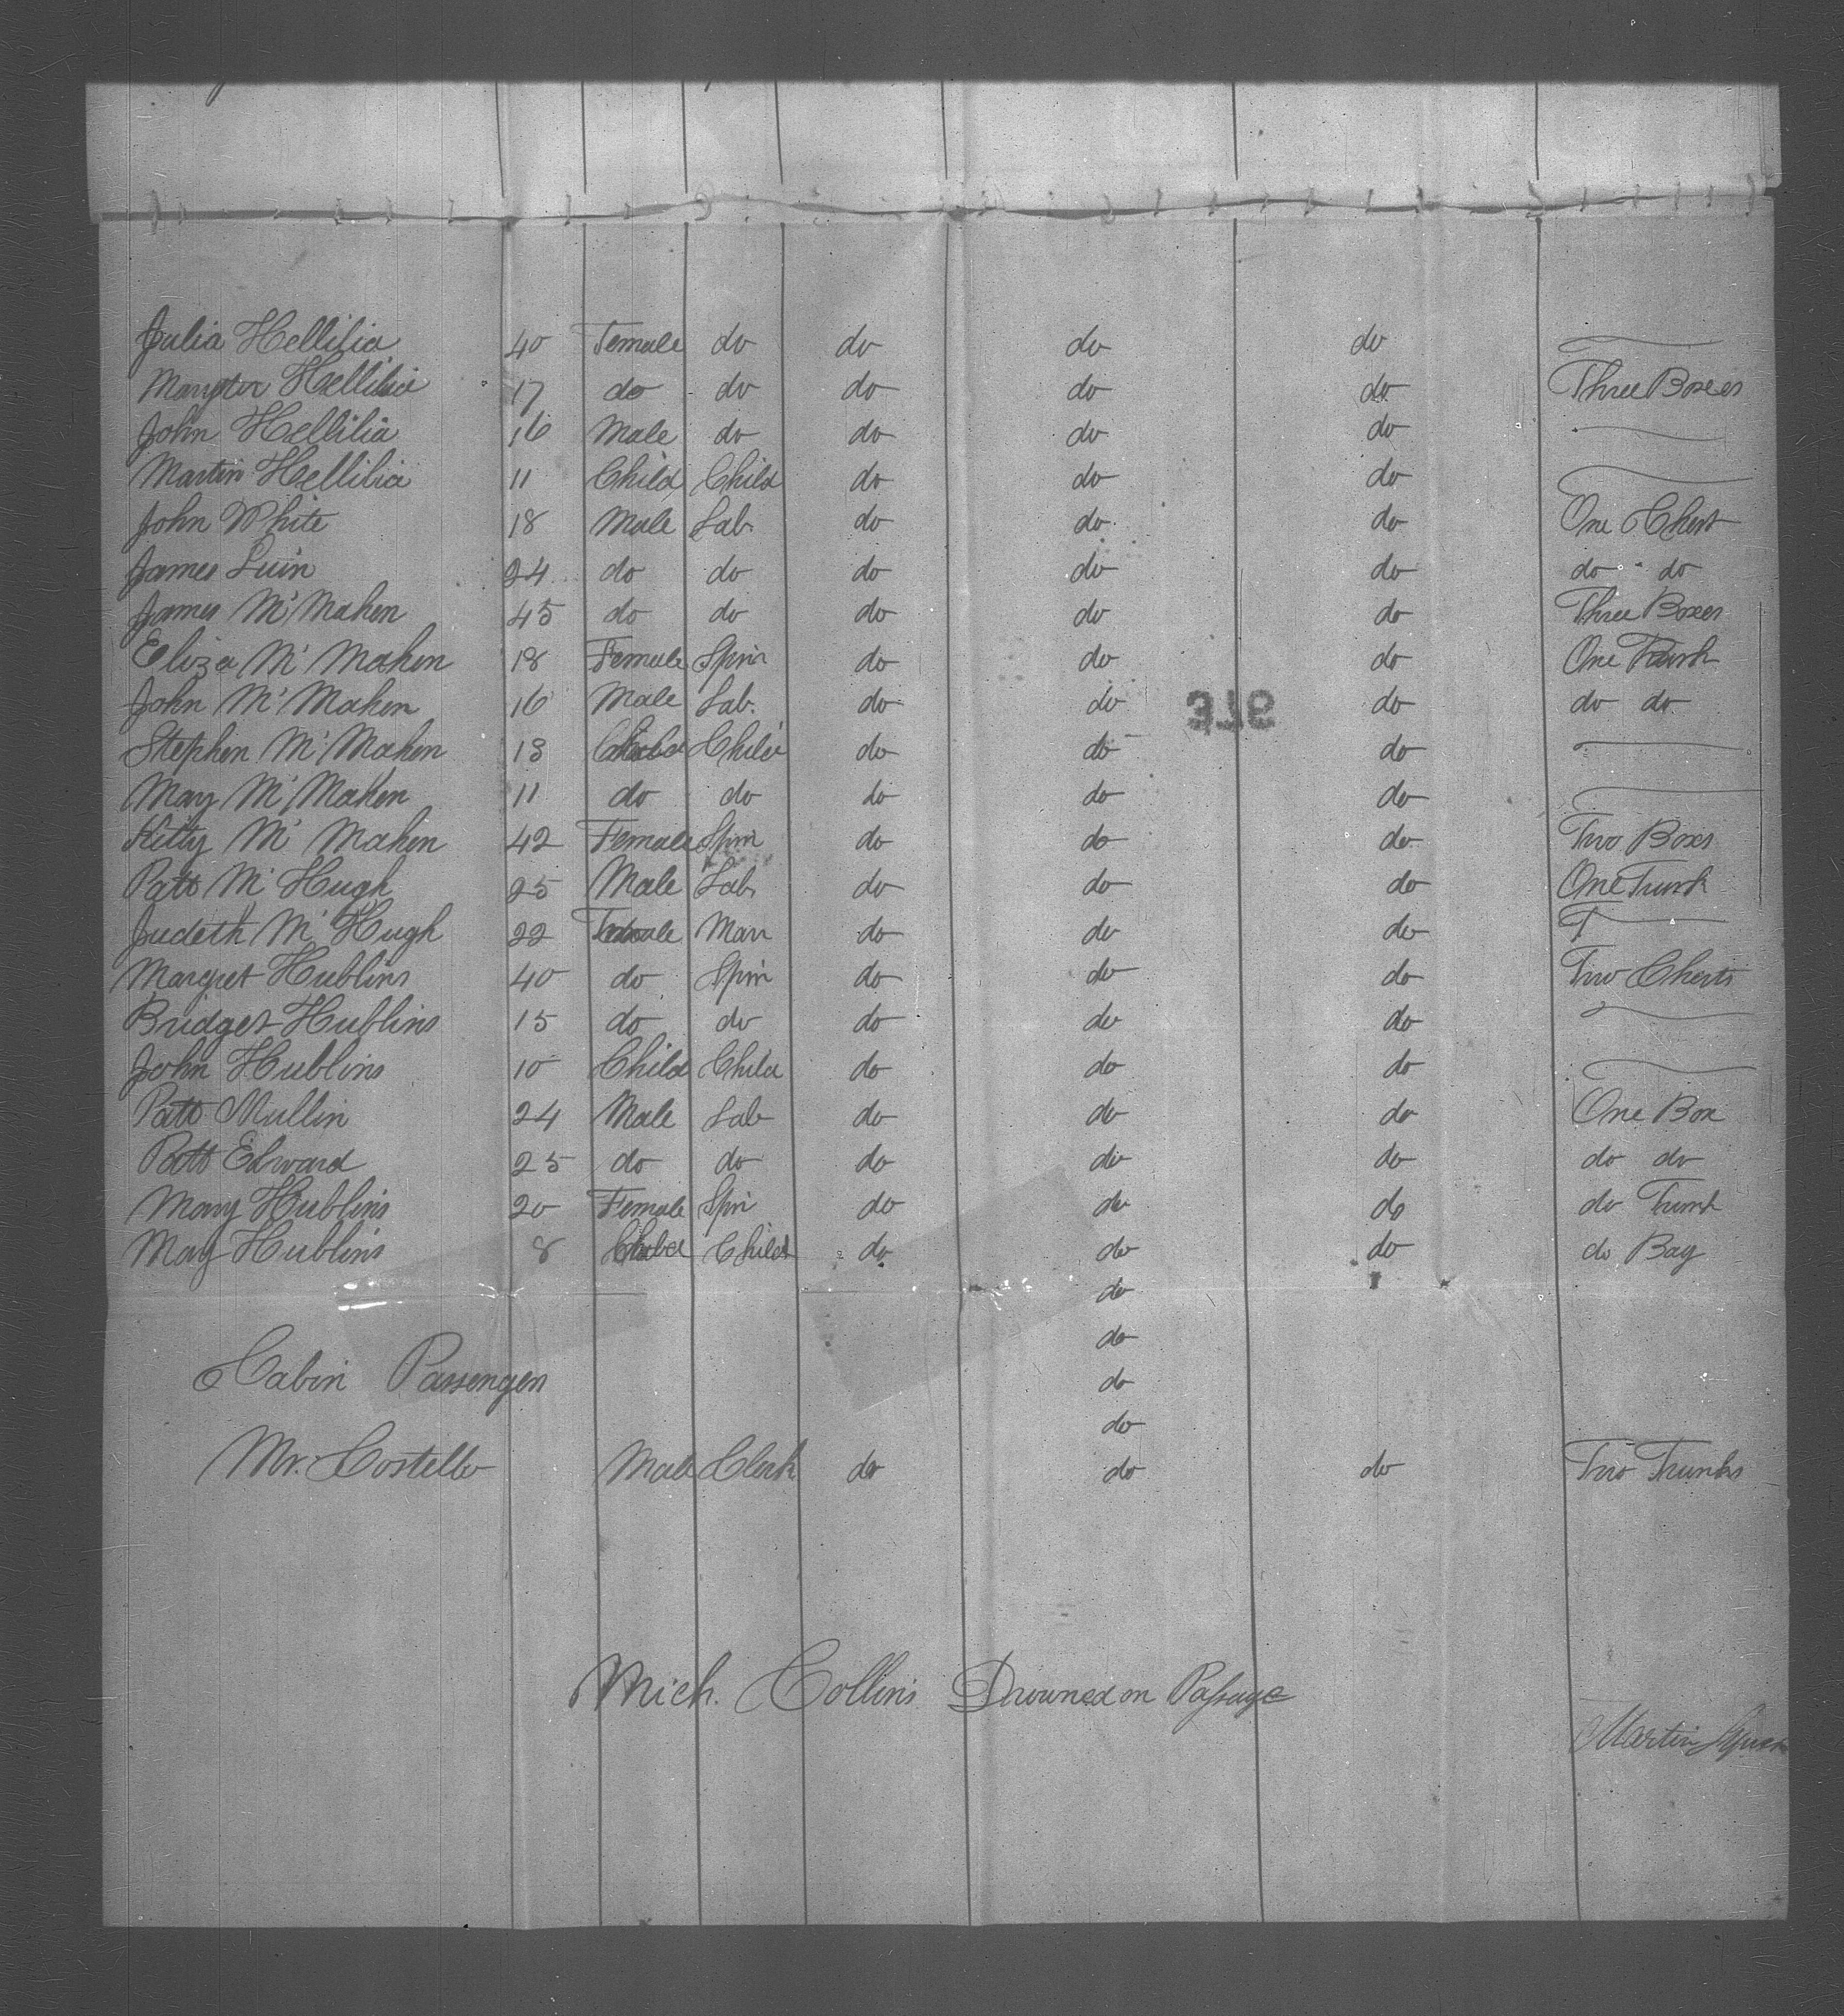 Julia Hellilia 40 Female do do do do
Margtr Hellilia 17 do do do do do Three Boxes
John Hellilia 16 Male do do do do
Martin Hellilia 11 Child Child do do do
John White 18 Male Lab. do do. do One Chest
James Luin 24 do do do do do do do
James Mc Mahen 45 do do do do do Three Boxes
Eliza Mc Mahen 18 Female Spin do do do One Trunk
John Mc Mahen 16 Male Lab. do do do do do
Stephen Mc Mahen 13 Child Child do do do
May Mc Mahen 11 do do do do do
Kitty Mc Mahen 42 Female Spin do do do Two Boxs
Patt Mc Hugh 25 Male Lab. do do do One Trunk
Judeth Mc Hugh 22 Female Marr do do do
Margret Hublins 40 do Spin do do do Two Chests
Bridget Hublins 15 do do do do do
John Hublins 10 Child Child do do do
Patt Mullin 24 Male Lab do do do One Box
Patt Edward 25 do do do do do do do
Mary Hublins 20 Female Spin do do do do Trunk
May Hublins 8 Child Child do do do do Bag
do
do
Cabin Passengers do
do
Mr. Costello Male Clerk do do do Two Trunks
Mich. Collins Drowned on Passage
Martin Lynch